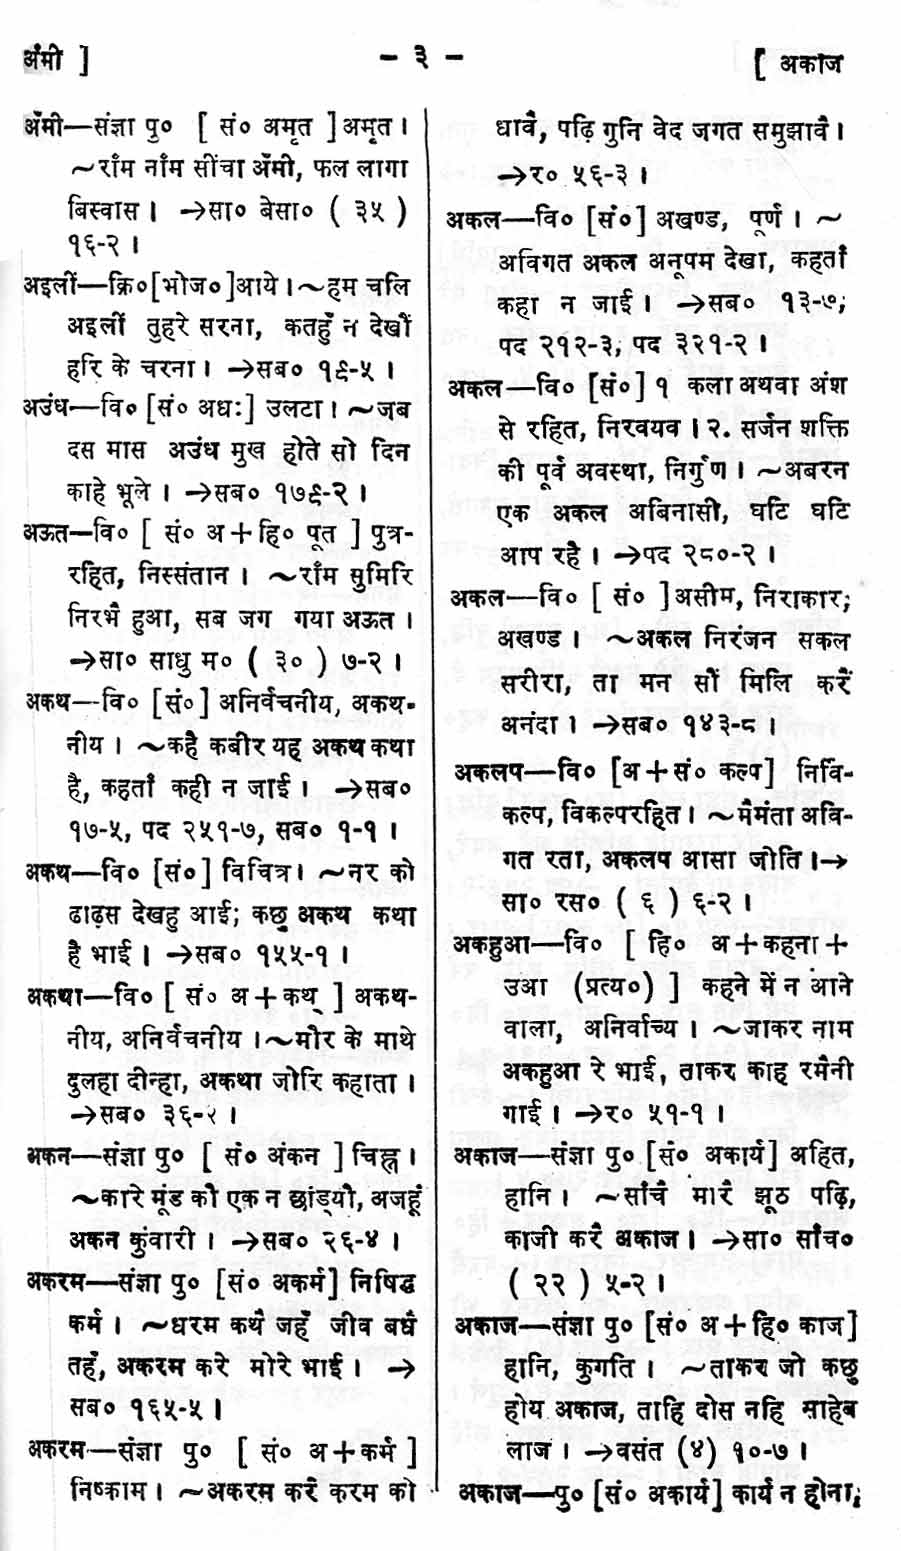 अँमी ]
– ३ –
[ अकाज
अँमी—संज्ञा पु० [ सं० अमृत ]अमृत।
~राँम नाँम सींचा अँमी, फल लागा
बिस्वास। →सा० बेसा० ( ३५ )
१६-२।
अइलीं—क्रि०[भोज०]आये।~हम चलि
अइलीं तुहरे सरना, कतहुँ न देखौं
हरि के चरना। →सब० १९-५।
अउंध—वि० [सं० अधः] उलटा। ~जब
दस मास अउंध मुख होते सो दिन
काहे भूले। →सब० १७९-२।
अऊत—वि० [ सं० अ+हि० पूत ] पुत्र-
रहित, निस्संतान। ~राँम सुमिरि
निरभै हुआ, सब जग गया अऊत।
→सा० साधु म० ( ३० ) ७-२।
अकथ—वि० [सं०] अनिर्वचनीय, अकथ-
नीय। ~कहै कबीर यह अकथ कथा
है, कहताँ कही न जाई। →सब०
१७-५, पद २५१-७, सब० १-१।
अकथ—वि० [सं०] विचित्र। ~नर को
ढाढ़स देखहु आई; कछु अकथ कथा
है भाई। →सब० १५५-१।
अकथा—वि० [ सं० अ+कथ ] अकथ-
नीय, अनिर्वचनीय।~मोर के माथे
दुलहा दीन्हा, अकथा जोरि कहाता।
→सब० ३६-२।
अकन—संज्ञा पु० [ सं० अंकन ] चिह्न।
~कारे मूंड को एक न छांड्यौ, अजहूं
अकन कुंवारी। →सब० २६-४।
अकरम—संज्ञा पु० [सं० अकर्म] निषिद्ध
कर्म। ~धरम कथै जहँ जीव बधै
तहँ, अकरम करे मोरे भाई। →
सब० १६५-५।
अकरम—संज्ञा पु० [ सं० अ+कर्म ]
निष्काम। ~अकरम करै करम को
धावै, पढ़ि गुनि वेद जगत समुझावै।
→र० ५६-३।
अकल—वि० [सं०] अखण्ड, पूर्ण। ~
अविगत अकल अनूपम देखा, कहताँ
कहा न जाई। →सब० १३-७;
पद २१२-३, पद ३२१-२।
अकल—वि० [सं०] १ कला अथवा अंश
से रहित, निरवयव। २. सर्जन शक्ति
की पूर्व अवस्था, निर्गुण। ~अबरन
एक अकल अबिनासी, घटि घटि
आप रहै। →पद २८०-२।
अकल—वि० [ सं० ]असीम, निराकार;
अखण्ड। ~अकल निरंजन सकल
सरीरा, ता मन सौं मिलि करै
अनंदा। →सब० १४३-८।
अकलप—वि० [अ+सं० कल्प] निर्वि-
कल्प, विकल्परहित। ~मैमंता अवि-
गत रता, अकलप आसा जोति।→
सा० रस० ( ६ ) ६-२।
अकहुआ—वि० [ हि० अ+कहना+
उआ (प्रत्य०) ] कहने में न आने
वाला, अनिर्वाच्य। ~जाकर नाम
अकहुआ रे भाई, ताकर काह रमैनी
गाई। →र० ५१-१।
अकाज—संज्ञा पु० [सं० अकार्य] अहित,
हानि। ~साँचै मारै झूठ पढ़ि,
काजी करै अकाज। →सा० साँच०
( २२ ) ५-२।
अकाज—संज्ञा पु० [सं० अ+हि० काज]
हानि, कुगति। ~ताकर जो कछु
होय अकाज, ताहि दोस नहि साहेब
लाज। →वसंत (४) १०-७।
अकाज—पु० [सं० अकार्य] कार्य न होना;